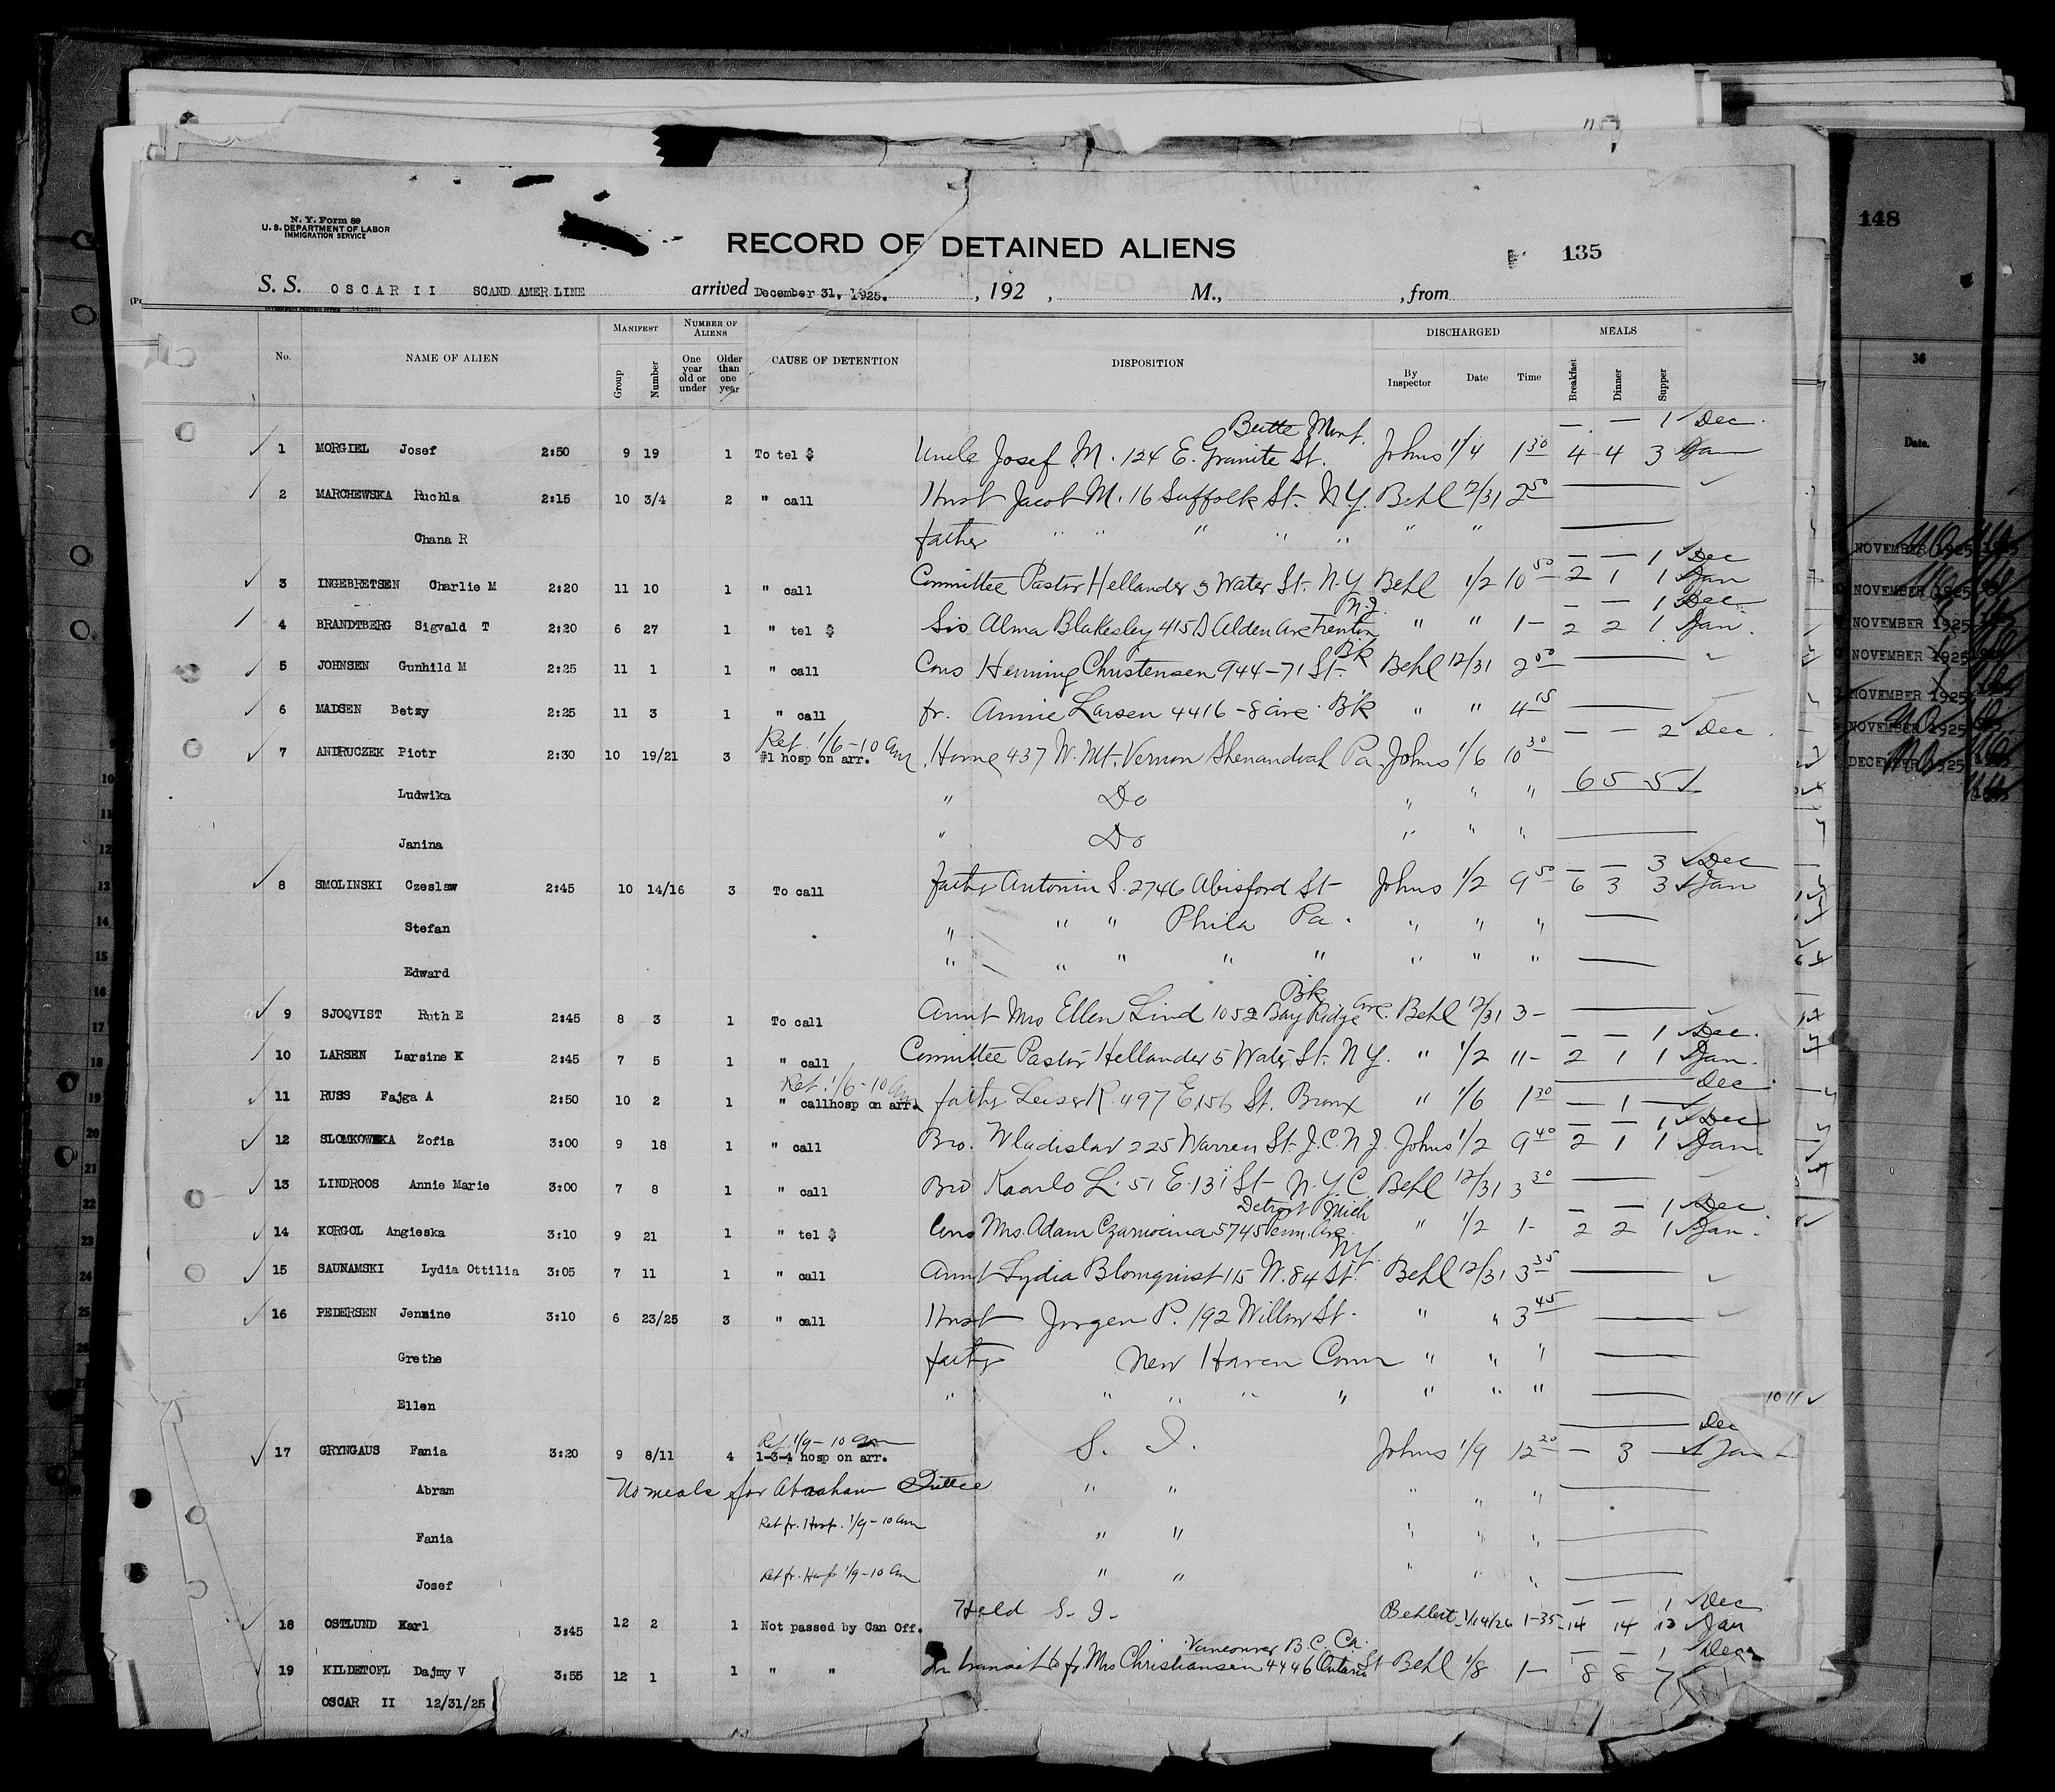 148
N. Y. Form 89
U. S. DEPARTMENT OF LABOR
IMMIGRATION SERVICE
RECORD OF DETAINED ALIENS
135
S. S. OSCAR II SCAND AMER LINE arrived December 31, 1925. , 192 , M., , from
No. NAME OF ALIEN MANIFEST Group Number NUMBER OF ALIENS One year old or under Older than one year CAUSE OF DETENTION DISPOSITION DISCHARGED By Inspector Date Time MEALS Breakfast Dinner Supper
Butte Mont. — — 1 ✓ Dec.
1 MORGIEL Josef 2:50 9 19 1 To tel $ Uncle Josef M. 124 E. Granite St. Johns 1/4 1 30 4 4 3 Jan
2 MARCHEWSKA Ruchla 2:15 10 3/4 2 " call Husb Jacob M. 16 Suffolk St. N.Y. Behl 12/31 2 50
Chana R father " " " " " " "
— — 1 ✓ Dec
3 INGEBRETSEN Charlie M 2:20 11 10 1 " call Committee Pastor Hellander 5 Water St. N.Y Behl 1/2 10 50 2 1 1 Jan
N.J. — — 1 Dec
4 BRANDTBERG Sigvald T 2:20 6 27 1 " tel $ Sis Alma Blakesley 415 D Alden Ave Trenton " " 1— 2 2 1 Jan.
Bk
5 JOHNSEN Gunhild M 2:25 11 1 1 " call Cous Henning Christensen 944-71 St. Behl 12/31 2 50
6 MADSEN Betzy 2:25 11 3 1 " call fr. Annie Larsen 4416-8 ave. Bk " " 4 15
Ret. 1/6-10 am — — 2 ✓ Dec.
7 ANDRUCZEK Piotr 2:30 10 19/21 3 #1 hosp on arr. Home 437 W. Mt. Vernon Shenandoah Pa. Johns 1/6 10 30
Ludwika " Do " " " 6 5 5
Janina " Do " " "
— — 3 ✓ Dec
8 SMOLINSKI Czeslaw 2:45 10 14/16 3 To call father Antonin S. 2746 Abisford St Johns 1/2 9 50 6 3 3 Jan
Stefan " " " Phila Pa. " " "
Edward " " " " " " " "
Bk
9 SJOQVIST Ruth E 2:45 8 3 1 To call Aunt Mrs Ellen Lind 1052 Bay Ridge Ave. Behl 12/31 3—
— — 1 ✓ Dec.
10 LARSEN Larsine K 2:45 7 5 1 " call Committee Pastor Hellander 5 Water St. N Y. " 1/2 11— 2 1 1 Jan.
Ret. 1/6-10 am Dec
11 RUSS Fajga A 2:50 10 2 1 " callhosp on arr. father Leiser R. 497 E. 156 St. Bronx " 1/6 1 30 — 1 —
— — 1 ✓ Dec
12 SLOMKOWSKA Zofia 3:00 9 18 1 " call Bro. Wladislav 225 Warren St. J.C. N.J. Johns 1/2 9 40 2 1 1 ✓ Jan.
13 LINDROOS Annie Marie 3:00 7 8 1 " call Bro Kaarlo L. 51 E. 131 St N.Y.C. Behl 12/31 3 30
Detroit Mich — — 1 ✓ Dec.
14 KORGOL Angieska 3:10 9 21 1 " tel $ Cous Mrs. Adam 5745 Penn. Ave. " 1/2 1- 2 2 1 Jan.
NY
15 SAUNAMSKI Lydia Ottilia 3:05 7 11 1 " call Aunt Lydia Blomquist 115 W. 84 St. Behl 12/31 3 35
16 PEDERSEN Jennine 3:10 6 23/25 3 " call Husb Jorgen P. 192 Willow St. " " 3 45
Grethe father New Haven Conn " " "
Ellen " " " " " " " "
10 11 ✓
Ret. 1/9-10 am Dec
17 GRYNGAUS Fania 3:20 9 8/11 4 1-3-4 hosp on arr. S. I. Johns 1/9 12 20 — 3 — Jan
Abram No meals for Abraham " " " " "
Fania Ret fr. Hosp. 1/9-10 am " " " " "
Josef Ret fr. Hosp 1/9-10 am " " " " "
— — 1 Dec
18 OSTLUND Karl 3:45 12 2 1 Not passed by Can Off. Held S. I. 1/14/26 1-35 14 14 13 Jan
Vancouver B.C. Ca. — — 1 ✓ Dec
19 KILDETOFL Dajmy V 3:55 12 1 1 " " In transit to fr. Mrs Christiansen 4446 Ontario St Behl 1/8 1— 8 8 7
OSCAR II 12/31/25
36
Date.
NOVEMBER 1925
NOVEMBER 1925
NOVEMBER 1925
NOVEMBER 1925
NOVEMBER 1925
NOVEMBER 1925
DECEMBER 1925
10
11
12
13
14
15
16
17
18
19
20
21
22
23
24
25